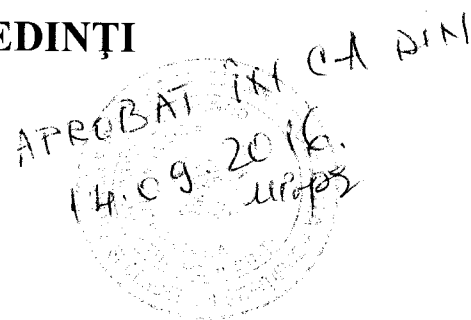 EDINŢI
APROBAT ÎN CA DIN
14.09.2016.